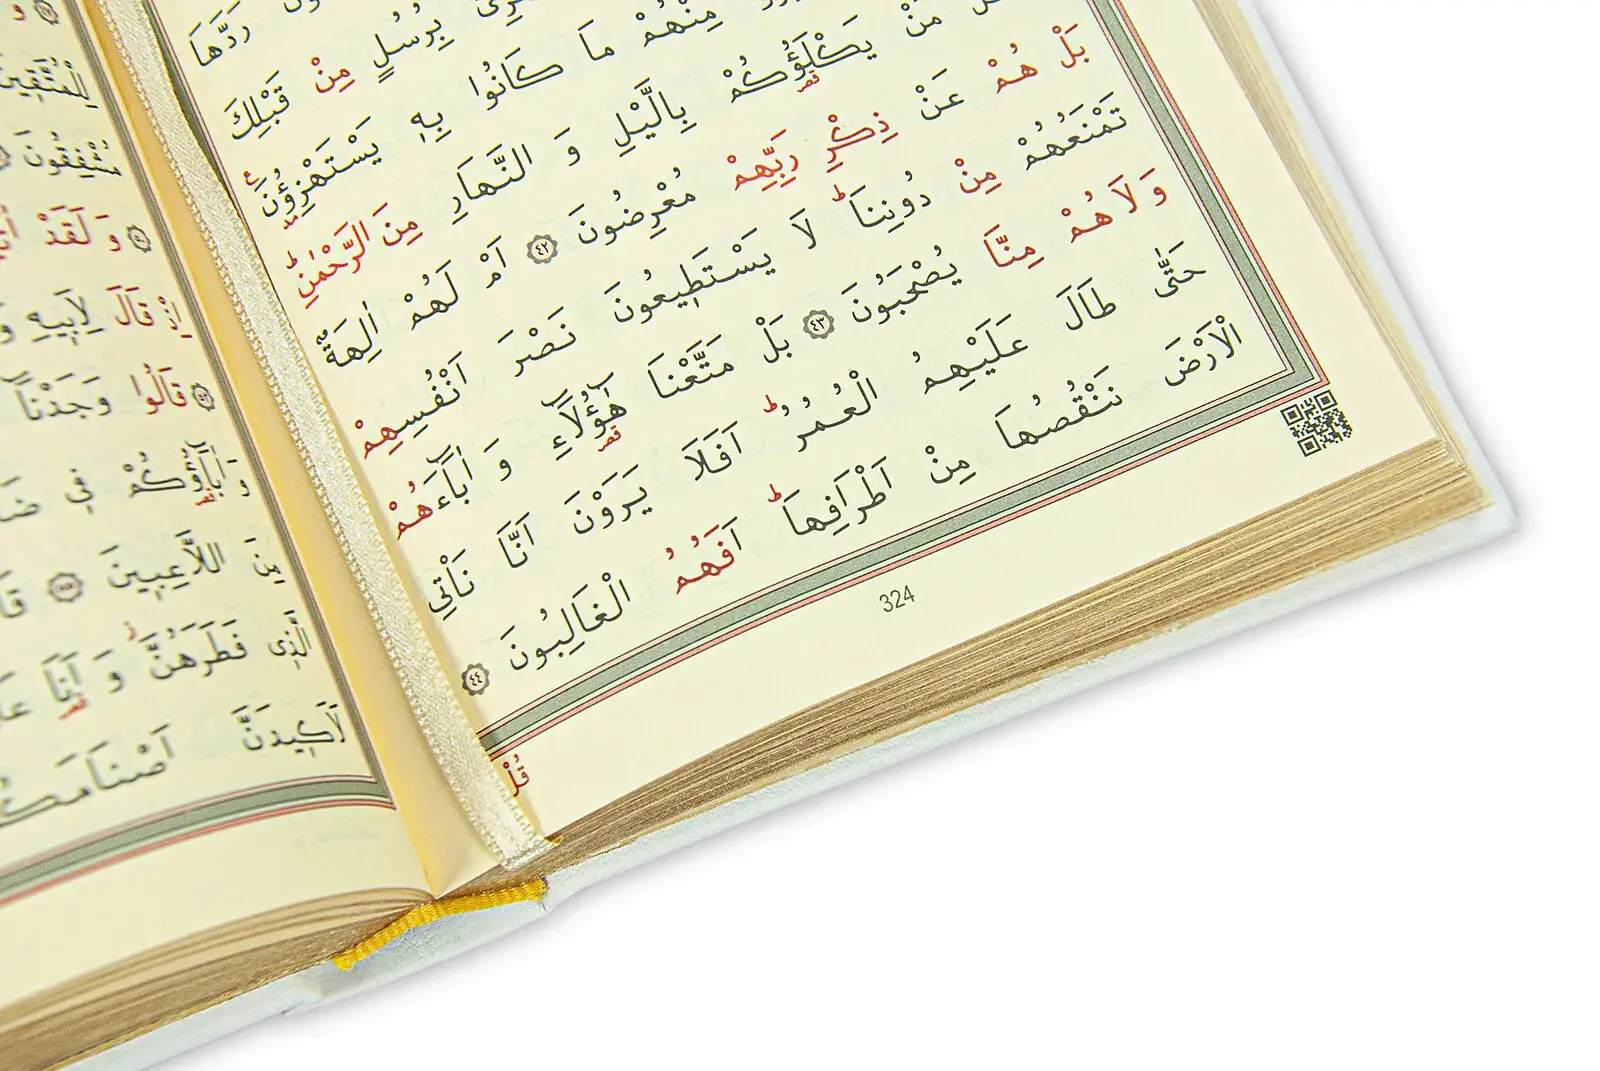 رَدَّهَا
بِرُسُلٍ مِنْ قَبْلِكَ
مِنْهُمْ مَا كَانُوا بِهِ يَسْتَهْزِؤُنَ
مَنْ يَكْلَؤُكُمْ بِالَّيْلِ وَ النَّهَارِ مِنَ الرَّحْمٰنِۜ
بَلْ هُمْ عَنْ ذِكْرِ رَبِّهِمْ مُعْرِضُونَ ٤٢ اَمْ لَهُمْ اٰلِهَةٌ
تَمْنَعُهُمْ مِنْ دُونِنَاۜ لَا يَسْتَطِيعُونَ نَصْرَ اَنْفُسِهِمْ
وَ لَا هُمْ مِنَّا يُصْحَبُونَ ٤٣ بَلْ مَتَّعْنَا هٰٓؤُلَاۤءِ وَ اٰبَاۤءَهُمْ
حَتّٰى طَالَ عَلَيْهِمُ الْعُمُرُۜ اَفَلَا يَرَوْنَ اَنَّا نَاْتِي
الْاَرْضَ نَنْقُصُهَا مِنْ اَطْرَافِهَاۜ اَفَهُمُ الْغَالِبُونَ ٤٤
324
قُلْ
لِلْمُتَّقِينَ
مُشْفِقُونَ
وَ لَقَدْ
اِذْ قَالَ لِاَبِيهِ وَ
قَالُوا وَجَدْنَا
وَ اٰبَاۤؤُكُمْ فِي
مِنَ اللَّاعِبِينَ
الَّذِي فَطَرَهُنَّ وَ اَنَا
لَاَكِيدَنَّ اَصْنَامَكُ